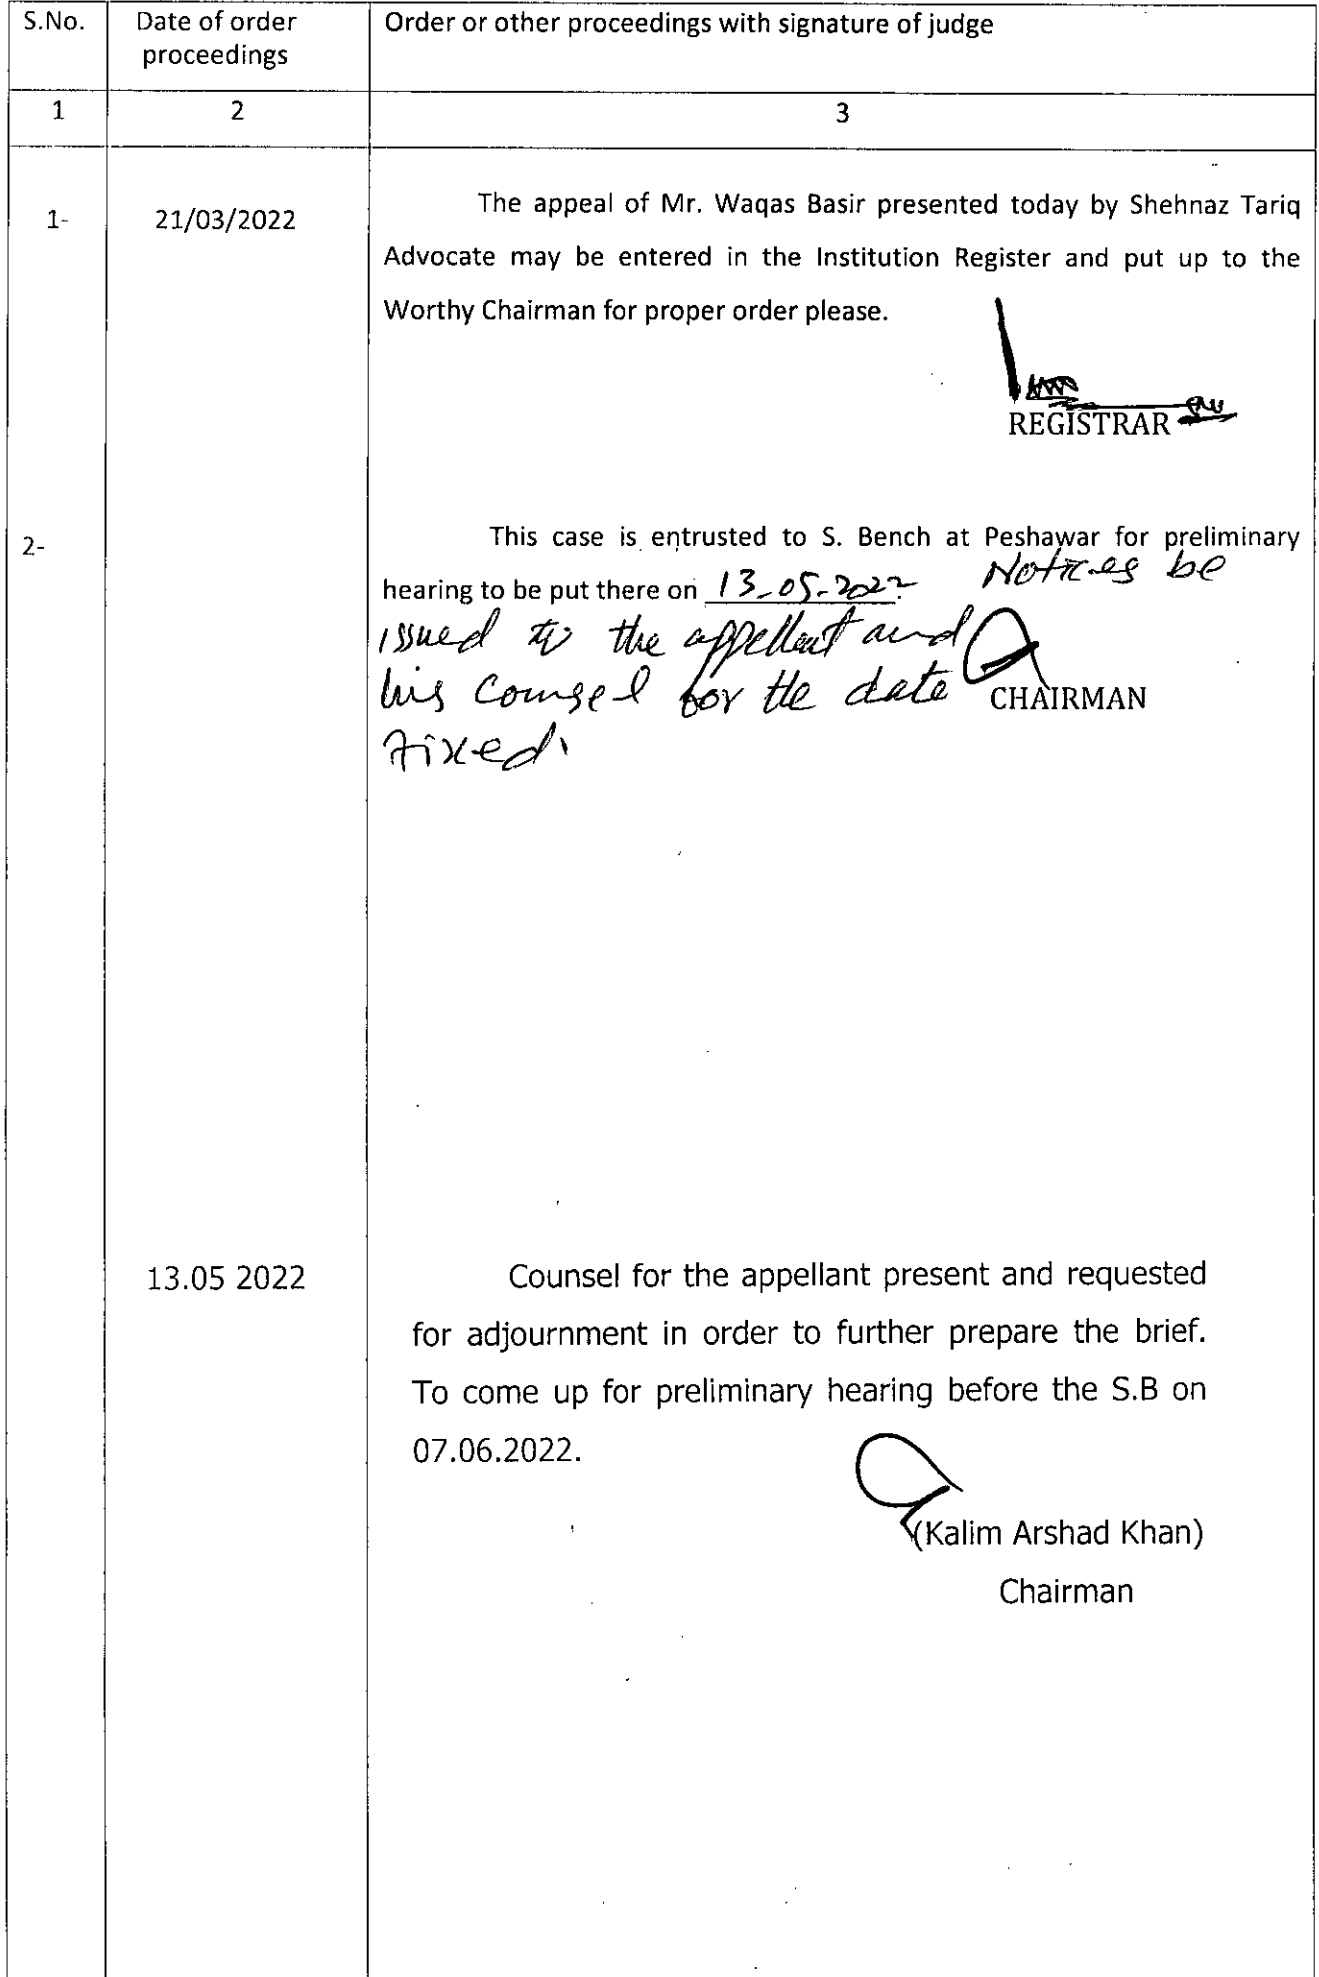 S.No. Date of order Order or other proceedings with signature of judge
proceedings
1 2 3
1- 21/03/2022 The appeal of Mr. Waqas Basir presented today by Shehnaz Tariq
Advocate may be entered in the Institution Register and put up to the
Worthy Chairman for proper order please.
REGISTRAR
2- This case is entrusted to S. Bench at Peshawar for preliminary
hearing to be put there on 13-05-2022. Notices be
issued to the appellant and
his counsel for the date
CHAIRMAN
fixed.
13.05 2022 Counsel for the appellant present and requested
for adjournment in order to further prepare the brief.
To come up for preliminary hearing before the S.B on
07.06.2022.
(Kalim Arshad Khan)
Chairman